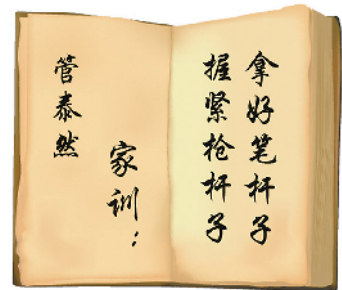 拿好笔杆子
握紧枪杆子
家训：
管泰然